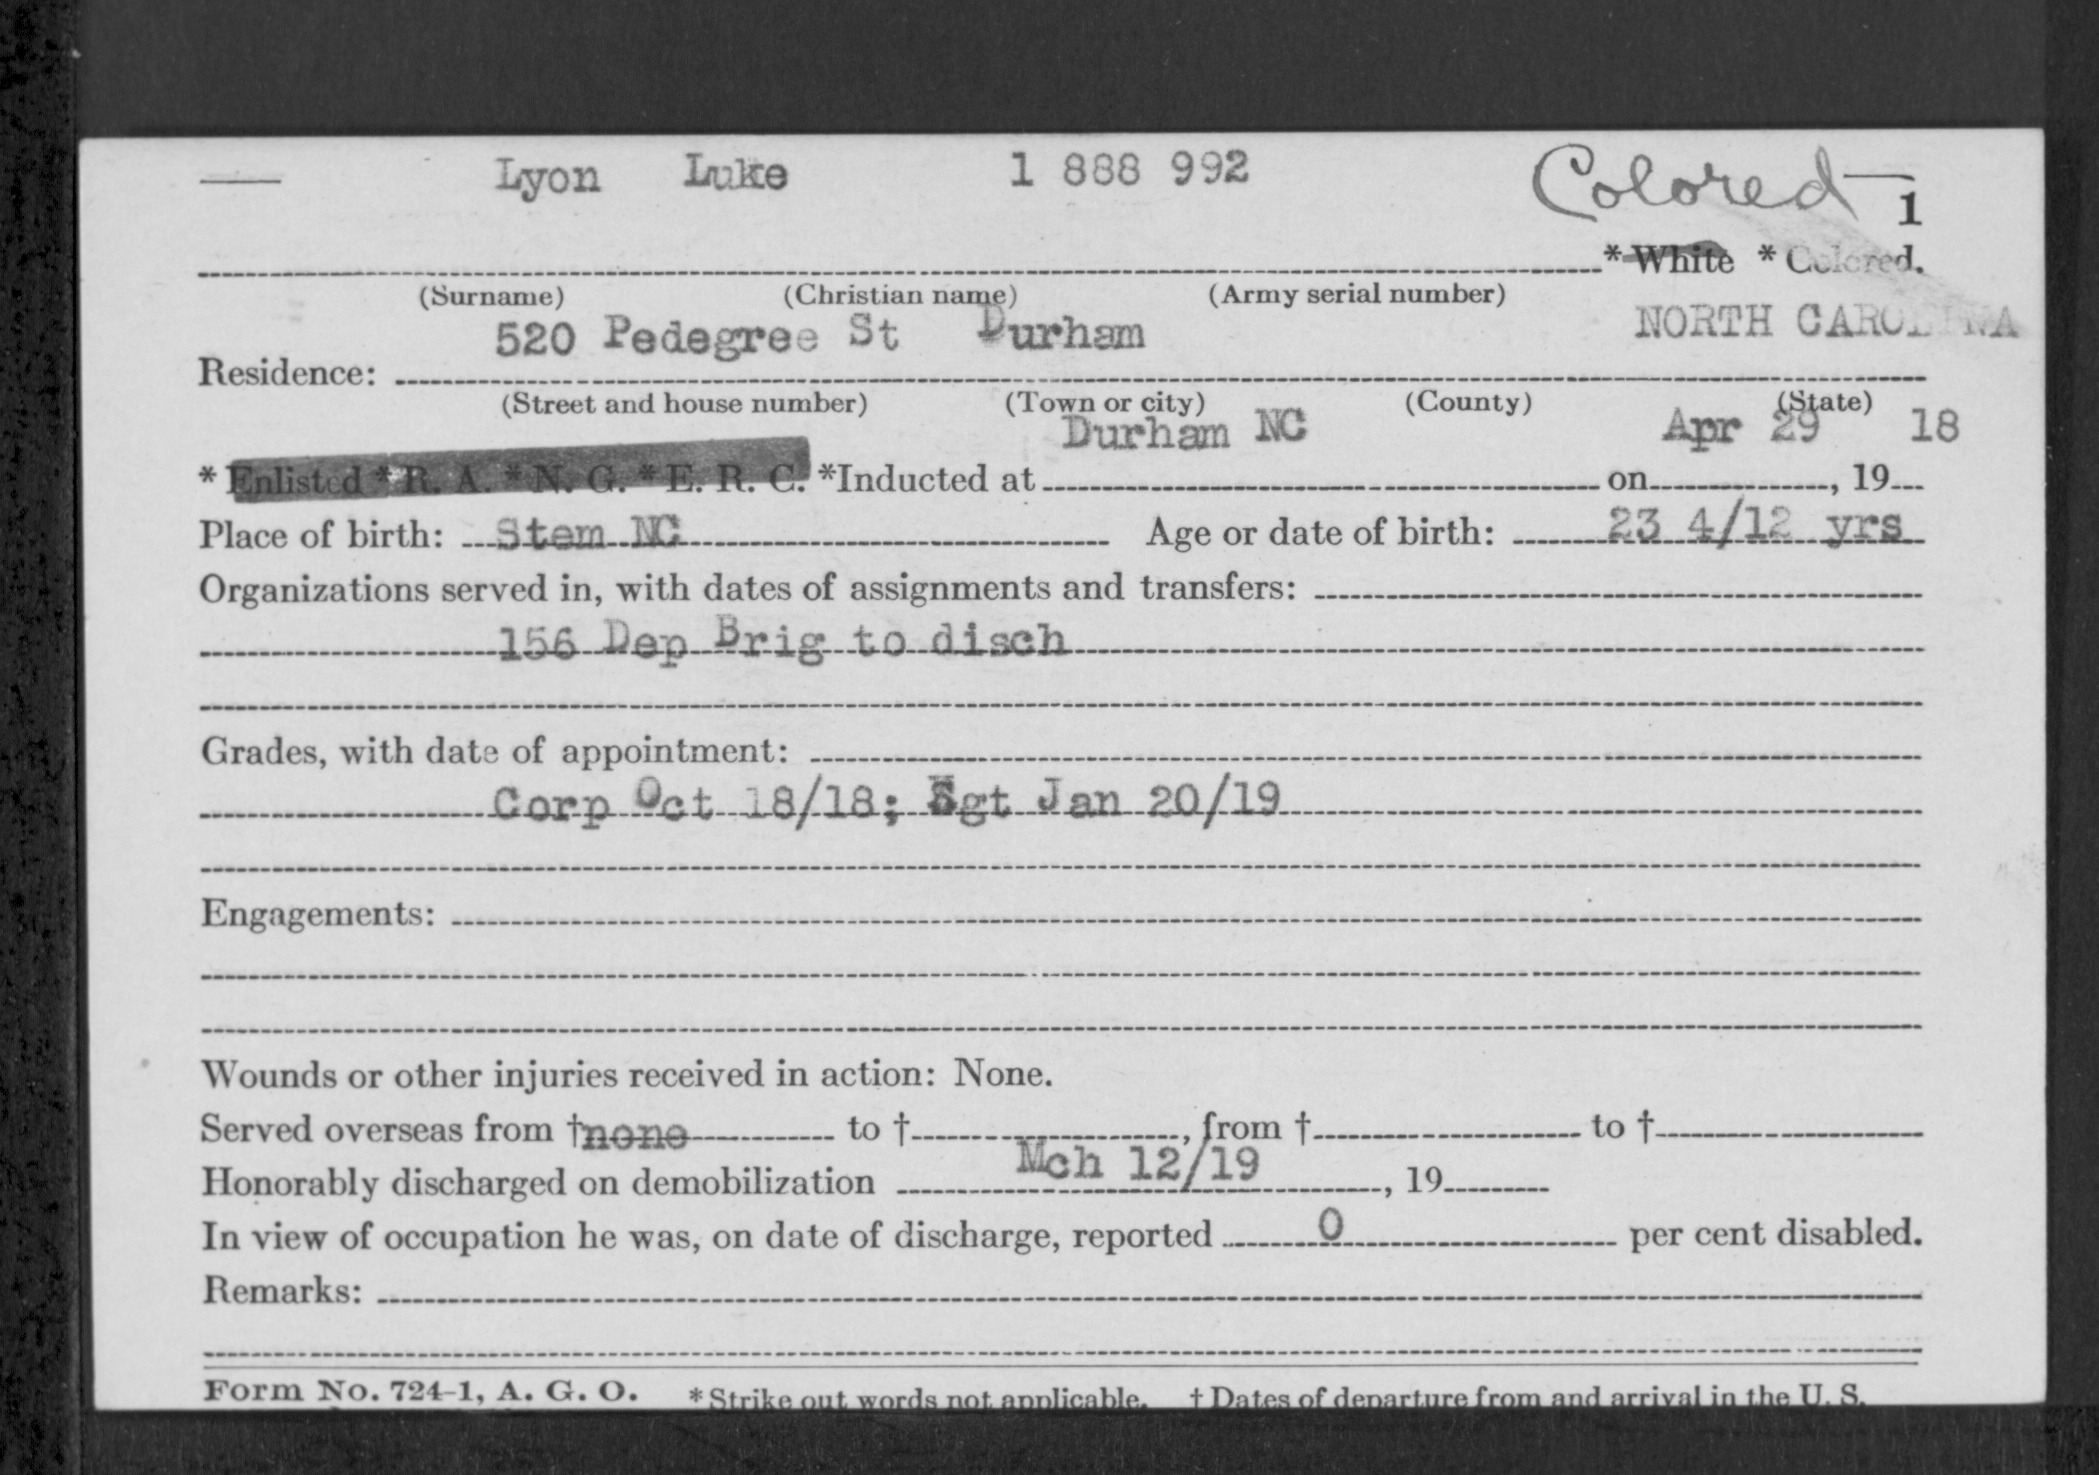 Lyon Luke 1 888 992 Colored 1
* White * Colored.
(Surname) (Christian name) (Army serial number)
520 Pedegree St Durham NORTH CAROLINA
Residence:
(Street and house number) (Town or city) (County) (State)
Durham NC Apr 29 18
* Enlisted * R. A. * N. G. * E. R. C. *Inducted at on , 19
Place of birth: Stem NC Age or date of birth: 23 4/12 yrs
Organizations served in, with dates of assignments and transfers:
156 Dep Brig to disch
Grades, with date of appointment:
Corp Oct 18/18; Sgt Jan 20/19
Engagements:
Wounds or other injuries received in action: None.
Served overseas from †none to † , from † to †
Mch 12/19
Honorably discharged on demobilization , 19
In view of occupation he was, on date of discharge, reported 0 per cent disabled.
Remarks:
Form No. 724-1, A. G. O. * Strike out words not applicable. † Dates of departure from and arrival in the U. S.